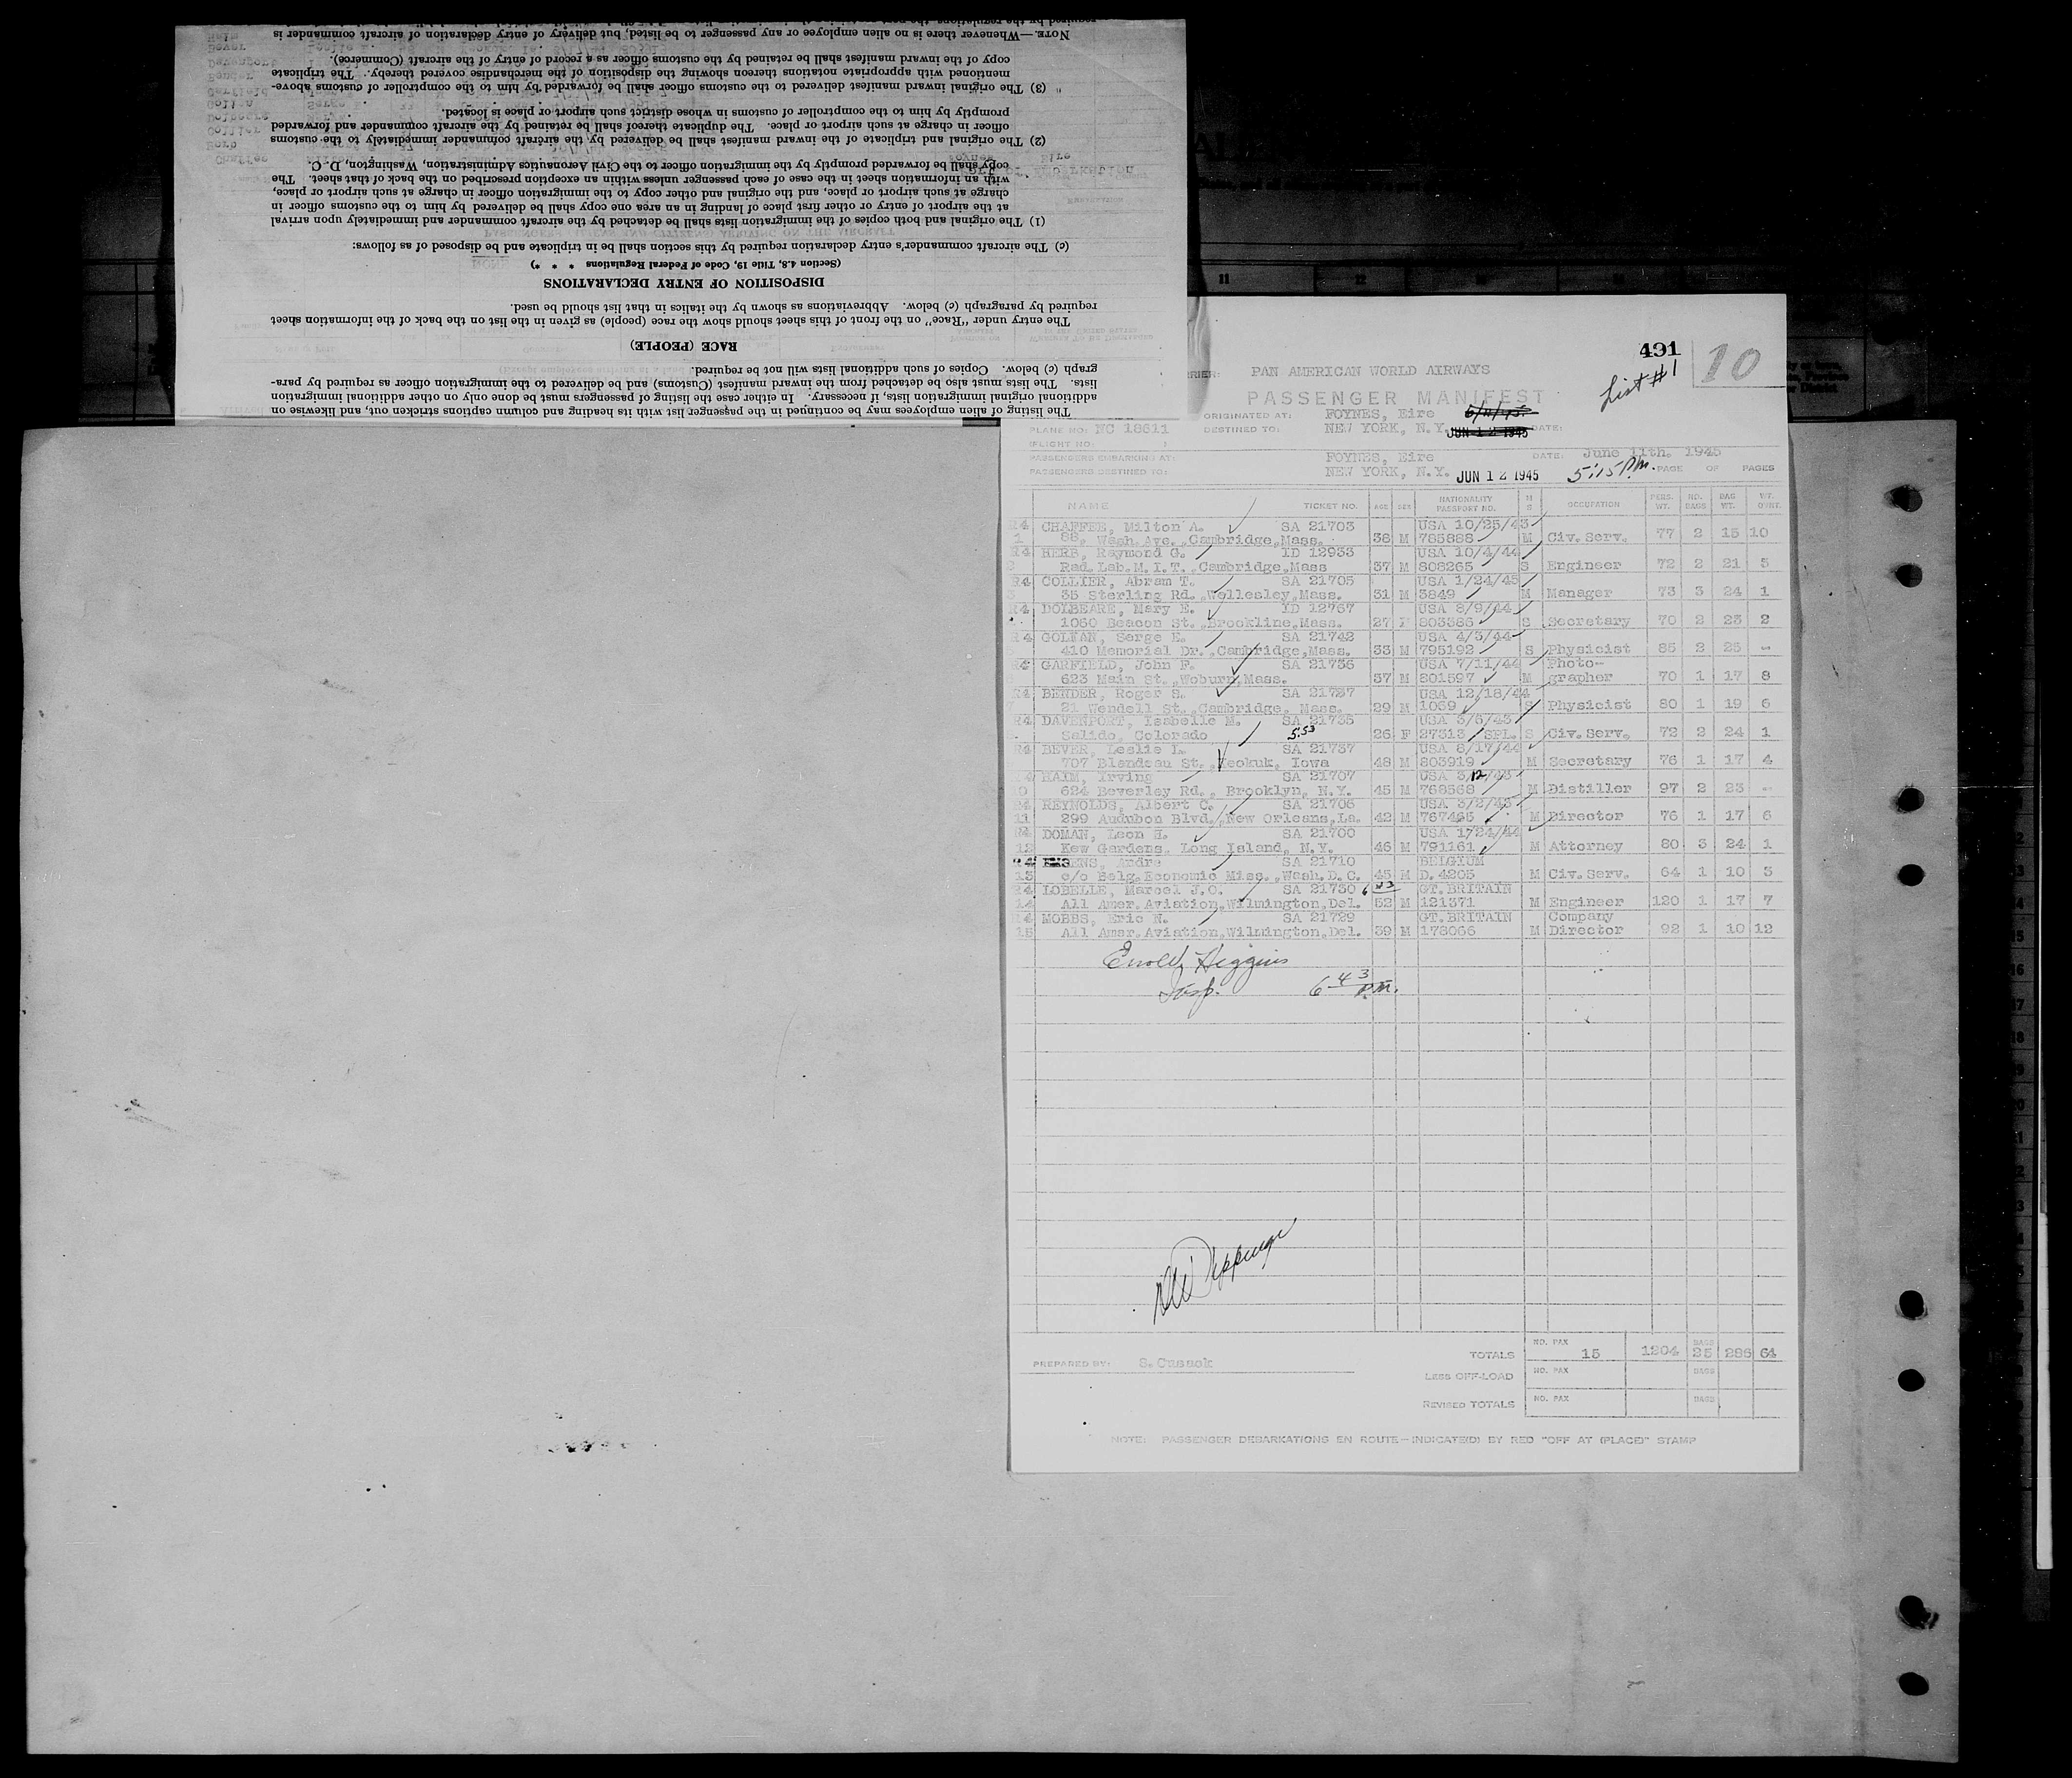 additional original immigration lists, if necessary. In either case the listing of passengers must be done only on other additional immigration
The listing of alien employees may be continued in the passenger list with its heading and column captions stricken out, and likewise on
lists. The lists must also be detached from the inward manifest (Customs) and be delivered to the immigration officer as required by para-
graph (c) below. Copies of such additional lists will not be required.
RACE (PEOPLE)
The entry under "Race" on the front of this sheet should show the race (people) as given in the list on the back of the information sheet
required by paragraph (c) below. Abbreviations as shown by the italics in that list should be used.
DISPOSITION OF ENTRY DECLARATIONS
(Section 4.8, Title 19, Code of Federal Regulations * * *)
(c) The aircraft commander's entry declaration required by this section shall be in triplicate and be disposed of as follows:
(1) The original and both copies of the immigration lists shall be detached by the aircraft commander and immediately upon arrival
at the airport of entry or other first place of landing in an area one copy shall be delivered by him to the customs officer in
charge at such airport or place, and the original and other copy to the immigration officer in charge at such airport or place,
with an information sheet in the case of each passenger unless within an exception prescribed on the back of that sheet. The
copy shall be forwarded promptly by the immigration officer to the Civil Aeronautics Administration, Washington, D. C.
(2) The original and triplicate of the inward manifest shall be delivered by the aircraft commander immediately to the customs
officer in charge at such airport or place. The duplicate thereof shall be retained by the aircraft commander and forwarded
promptly by him to the comptroller of customs in whose district such airport or place is located.
(3) The original inward manifest delivered to the customs officer shall be forwarded by him to the comptroller of customs above-
mentioned with appropriate notations thereon showing the disposition of the merchandise covered thereby. The triplicate
copy of the inward manifest shall be retained by the customs officer as a record of entry of the aircraft (Commerce).
NOTE.—Whenever there is no alien employee or any passenger to be listed, but delivery of entry declaration of aircraft commander is
11 12
491 10
List #1
RRIER: PAN AMERICAN WORLD AIRWAYS
PASSENGER MANIFEST
ORIGINATED AT: FOYNES, Eire 6/11/45
PLANE NO: NC 18611 DESTINED TO: NEW YORK, N.Y. JUN 12 1945 DATE:
FLIGHT NO:
PASSENGERS EMBARKING AT: FOYNES, Eire DATE: June 11th. 1945
PASSENGERS DESTINED TO: NEW YORK, N.Y. JUN 12 1945 5:15 P.M. PAGE OF PAGES
NAME TICKET NO. AGE SEX NATIONALITY PASSPORT NO. M S OCCUPATION PERS. WT. NO. BAGS BAG WT. WT. OVWT.
R4 CHAFFEE, Milton A. SA 21703 USA 10/25/43
1 88, Wash.Ave.,Cambridge,Mass. 38 M 785888 M Civ.Serv. 77 2 15 10
R4 HERB, Raymond G. ID 12933 USA 10/4/44
2 Rad.Lab.M.I.T.,Cambridge,Mass 37 M 808265 S Engineer 72 2 21 3
R4 COLLIER, Abram T. SA 21705 USA 1/24/45
3 35 Sterling Rd.,Wellesley,Mass. 31 M 3849 M Manager 73 3 24 1
R4 DOLBEARE, Mary E. ID 12767 USA 8/9/44
1060 Beacon St.,Brookline,Mass. 27 F 803386 S Secretary 70 2 23 2
R4 GOLIAN, Serge E. SA 21742 USA 4/3/44
410 Memorial Dr.,Cambridge,Mass. 33 M 795192 S Physicist 85 2 25 -
R4 GARFIELD, John F. SA 21736 USA 7/11/44 Photo-
623 Main St.,Woburn,Mass. 37 M 801597 M grapher 70 1 17 8
R4 BENDER, Roger S. SA 21727 USA 12/18/44
7 21 Wendell St.,Cambridge, Mass. 29 M 1069 S Physicist 80 1 19 6
R4 DAVENPORT, Isabelle M. SA 21735 USA 3/6/43
Salido, Colorado 553 26 F 27313 SPL. S Civ.Serv. 72 2 24 1
R4 BEVER, Leslie L. SA 21737 USA 8/17/44
707 Blondeau St.,Keokuk, Iowa 48 M 803919 M Secretary 76 1 17 4
R4 HAIM, Irving SA 21707 USA 3/12/43
10 624 Beverley Rd., Brooklyn, N.Y. 45 M 768568 M Distiller 97 2 23 -
R4 REYNOLDS, Albert C. SA 21706 USA 3/2/43
11 299 Audubon Blvd.,New Orleans,La. 42 M 767465 M Director 76 1 17 6
R4 DOMAN, Leon H. SA 21700 USA 1/24/44
12 Kew Gardens, Long Island, N.Y. 46 M 791161 M Attorney 80 3 24 1
R4 Andre SA 21710 BELGIUM
13 c/o Belg.Economic Miss.,Wash.D.C. 45 M D.4203 M Civ.Serv. 64 1 10 3
R4 LOBELLE, Marcel J.O. SA 21730 6 43 GT.BRITAIN
14 All Amer.Aviation,Wilmington,Del. 52 M 121371 M Engineer 120 1 17 7
R4 MOBBS, Eric N. SA 21729 GT.BRITAIN Company
15 All Amer.Aviation,Wilmington,Del. 39 M 178066 M Director 92 1 10 12
Higgins
Insp. 6 43 P.M.
PREPARED BY: S.Cusack
TOTALS NO. PAX 15 1204 BAGS 25 286 64
LESS OFF-LOAD NO. PAX BAGS
REVISED TOTALS NO. PAX BAGS
NOTE: PASSENGER DEBARKATIONS EN ROUTE—INDICATE(D) BY RED "OFF AT (PLACE)" STAMP